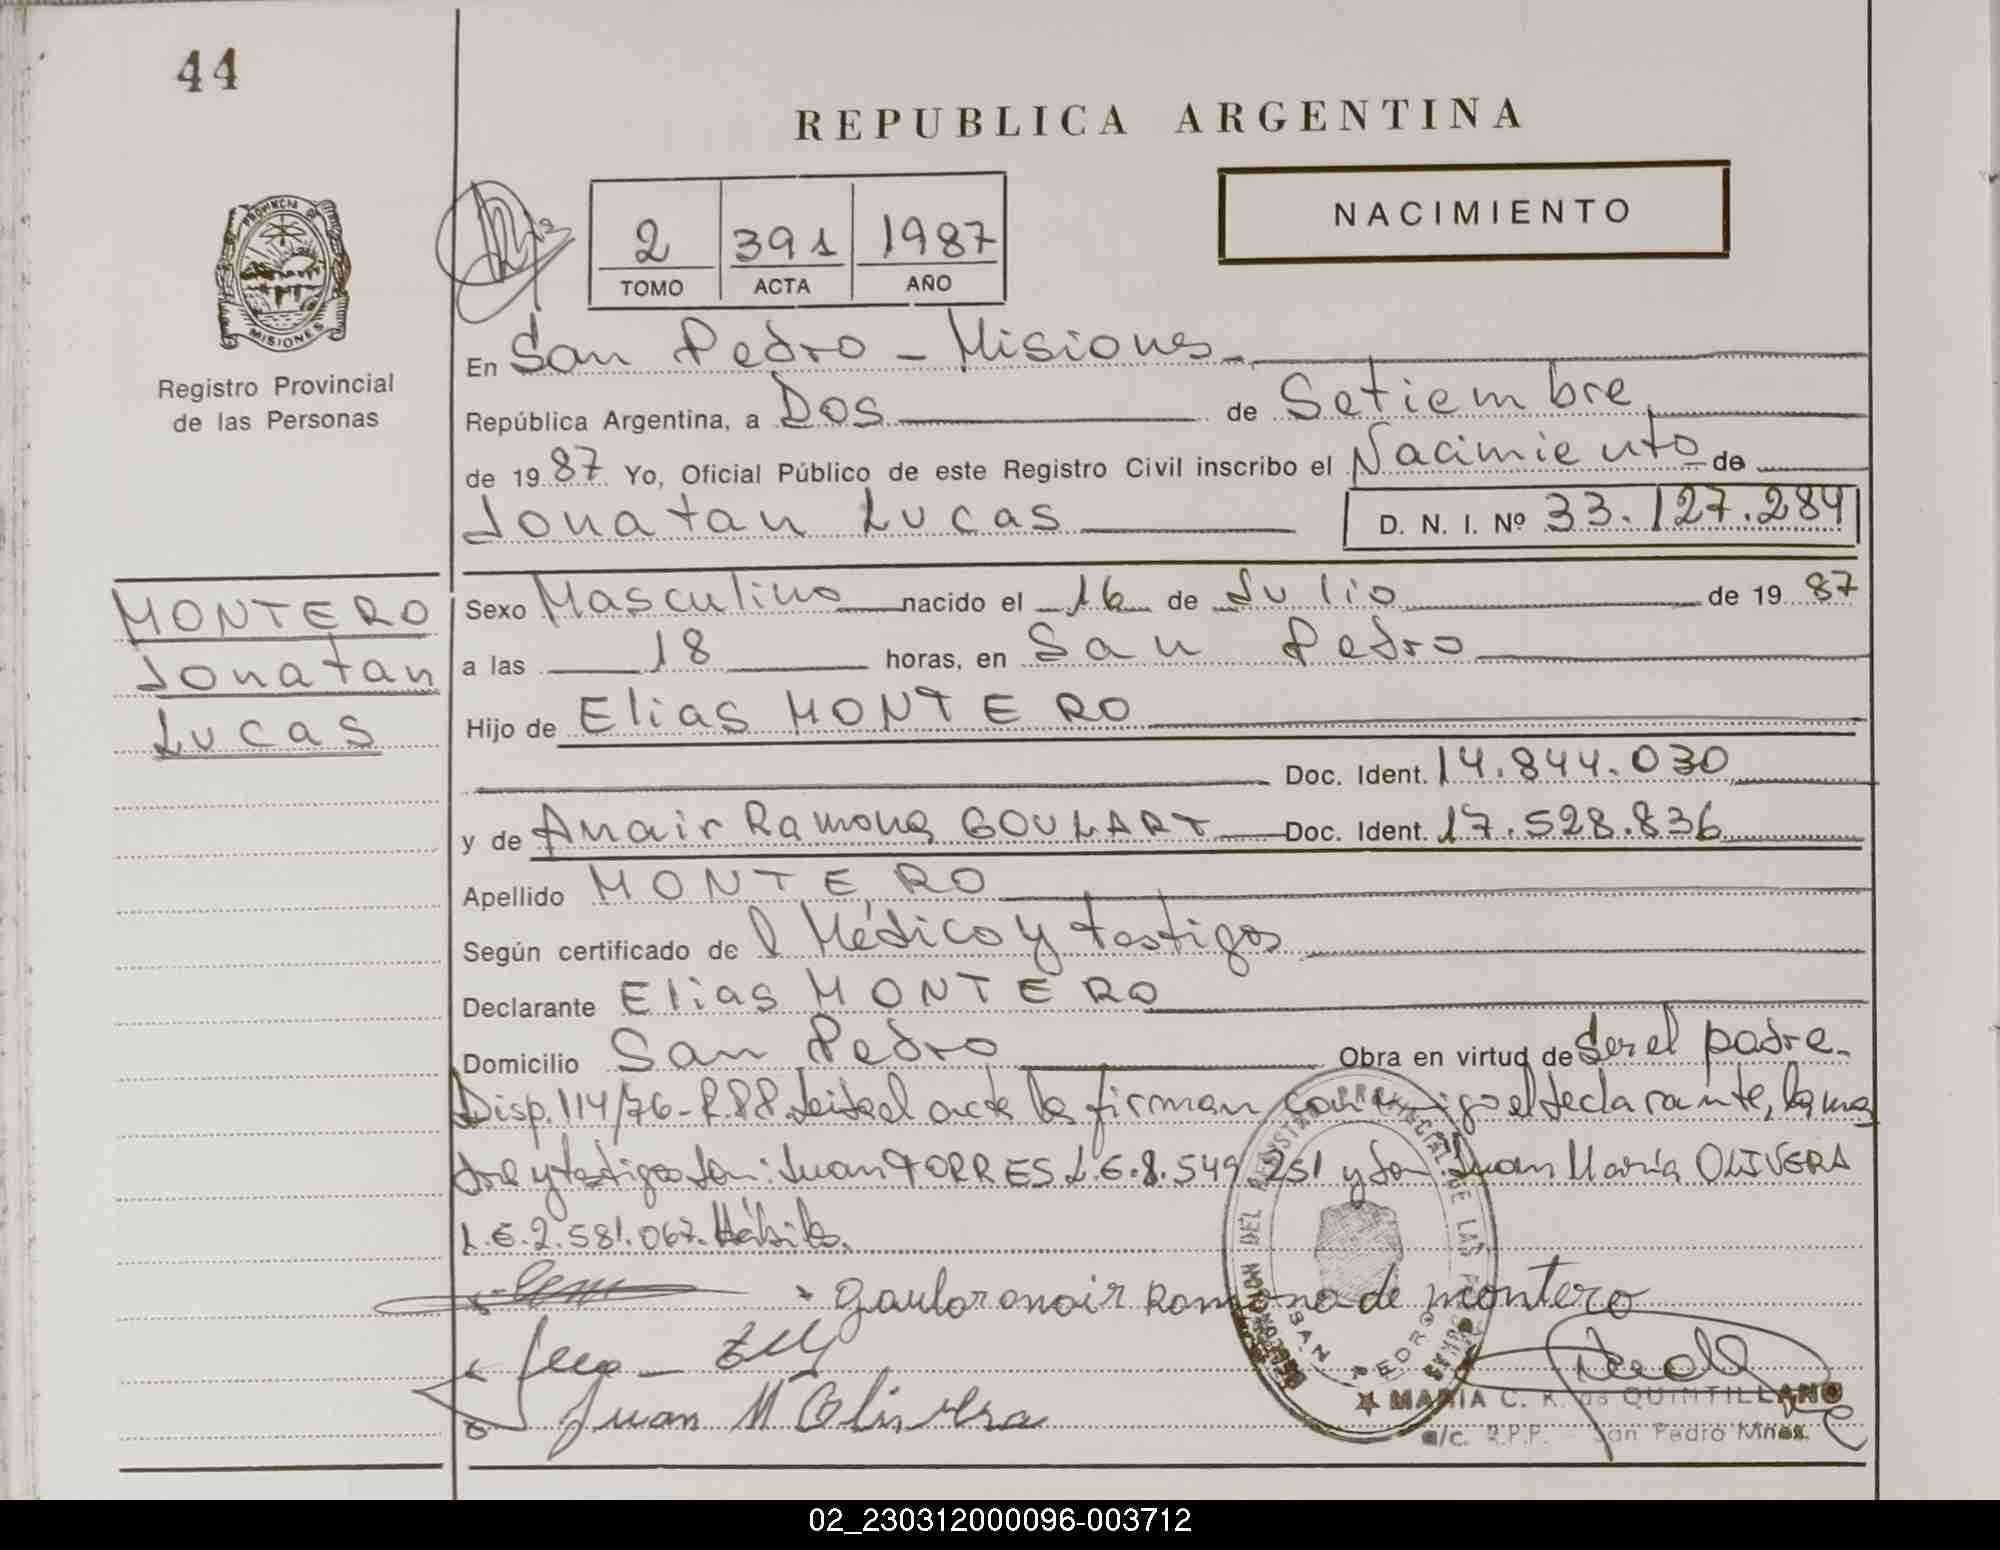 44
REPUBLICA ARGENTINA
NACIMIENTO
2 391 1987
TOMO ACTA AÑO
PROVINCIA DE
MISIONES
Registro Provincial
de las Personas
En San Pedro - Misiones
República Argentina, a Dos de Setiembre
de 1987 Yo, Oficial Público de este Registro Civil inscribo el Nacimiento de
Jonatan Lucas D. N. I. Nº 33.127.284
MONTERO
Jonatan
Lucas
Sexo Masculino nacido el 16 de Julio de 1987
a las 18 horas, en San Pedro
Hijo de Elias MONTERO
Doc. Ident. 14.844.030
y de Anair Ramona GOULART Doc. Ident. 17.528.836
Apellido MONTERO
Según certificado de l Médico y testigos
Declarante Elias MONTERO
Domicilio San Pedro Obra en virtud de ser el padre.
Disp. 114/76- R.P.P. Leida el acta la firman conmigo el declarante, la ma
dre y testigos Son: Juan TORRES L.E. 8.549.251 y Don Juan María OLIVERA
L.E. 2.581.067. Hábiles.
Ramona de montero
Juan M Olivera
MARIA C. K. de QUINTILLANO
a/c. R.P.P. San Pedro Mnes.
SAN PEDRO
02_230312000096-003712